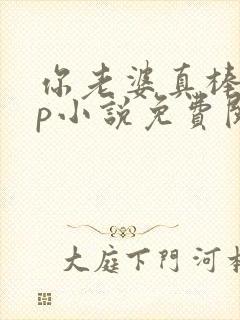 你老婆真棒
p小說免費
大庭下門河